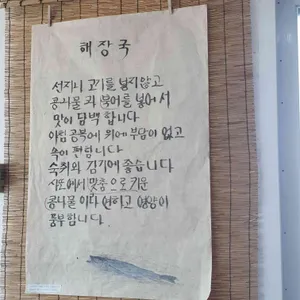 해장국
선지나 고기를 넣지않고
콩나물과 북어를 넣어서
맛이 담백합니다
아침 공복에 위에 부담이 없고
속이 편합니다
숙취와 감기에 좋습니다
시또에서 맞춤으로 키운
콩나물이라 연하고 영양이
풍부합니다.